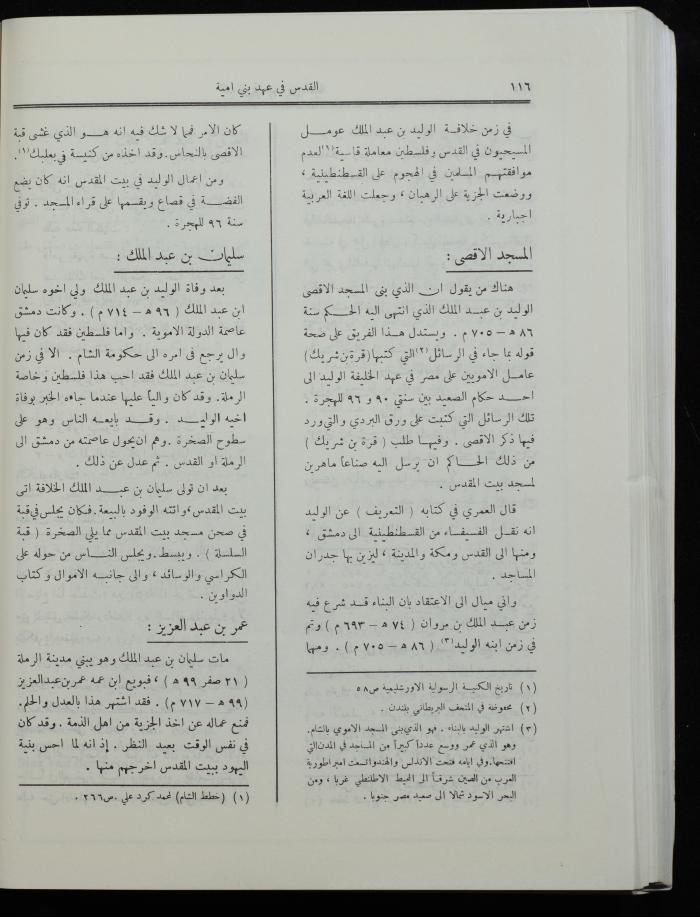 ١١٦
القدس في عهد بني امية
في زمن خلافة الوليد بن عبد الملك عومل
المسيحيون في القدس وفلسطين معاملة قاسية(١) لعدم
موافقتهم المسلمين في الهجوم على القسطنطينية ،
ووضعت الجزية على الرهبان ، وجعلت اللغة العربية
اجبارية .
المسجد الاقصى :
هناك من يقول ان الذي بنى المسجد الاقصى
الوليد بن عبد الملك الذي انتهى اليه الحكم سنة
٨٦ هـ – ٧٠٥ م . ويستدل هذا الفريق على صحة
قوله بما جاء في الرسائل(٢) التي كتبها (قرة بن شريك)
عامل الامويين على مصر في عهد الخليفة الوليد الى
احد حكام الصعيد بين سنتي ٩٠ و ٩٦ للهجرة .
تلك الرسائل التي كتبت على ورق البردي والتي ورد
فيها ذكر الاقصى . وفيها طلب ( قرة بن شريك )
من ذلك الحاكم ان يرسل اليه صناعاً ماهرين
لمسجد بيت المقدس .
قال العمري في كتابه ( التعريف ) عن الوليد
انه نقل الفسيفساء من القسطنطينية الى دمشق ،
ومنها الى القدس ومكة والمدينة ، ليزين بها جدران
المساجد .
واني ميال الى الاعتقاد بان البناء قد شرع فيه
زمن عبد الملك بن مروان ( ٧٤ هـ – ٦٩٣ م ) وتم
في زمن ابنه الوليد(٣) ( ٨٦ هـ – ٧٠٥ م ) . ومهما
(١) تاريخ الكنيسة الرسولية الاورشليمية ص ٥٨
(٢) محفوظة في المتحف البريطاني بلندن .
(٣) اشتهر الوليد بالبناء . فهو الذي بنى المسجد الاموي بالشام.
وهو الذي عمر ووسع عدداً كبيراً من المساجد في المدن التي
افتتحها. وفي ايامه فتحت الاندلس والهند واتسعت امبراطورية
العرب من الصين شرقاً الى المحيط الاطلنطي غربا ، ومن
البحر الاسود شمالا الى صعيد مصر جنوبا .
كان الامر فمما لا شك فيه انه هو الذي غشى قبة
الاقصى بالنحاس. وقد اخذه من كنيسة في بعلبك(١).
ومن اعمال الوليد في بيت المقدس انه كان يضع
الفضة في قصاع ويقسمها على قراء المسجد . توفي
سنة ٩٦ للهجرة .
سليمان بن عبد الملك :
بعد وفاة الوليد بن عبد الملك ولي اخوه سليمان
ابن عبد الملك ( ٩٦ هـ – ٧١٤ م ) . وكانت دمشق
عاصمة الدولة الاموية . واما فلسطين فقد كان فيها
وال يرجع في امره الى حكومة الشام . الا في زمن
سليمان بن عبد الملك فقد احب هذا فلسطين وخاصة
الرملة. وقد كان والياً عليها عندما جاءه الخبر بوفاة
اخيه الوليد . وقد بايعه الناس وهو على
سطوح الصخرة . وهم ان يحول عاصمته من دمشق الى
الرملة او القدس . ثم عدل عن ذلك .
بعد ان تولى سليمان بن عبد الملك الخلافة اتى
بيت المقدس ، واتته الوفود بالبيعة. فكان يجلس في قبة
في صحن مسجد بيت المقدس مما يلي الصخرة ( قبة
السلسلة ) . ويبسط . ويجلس الناس من حوله على
الكراسي والوسائد ، والى جانبه الاموال وكتاب
الدواوين .
عمر بن عبد العزيز :
مات سليمان بن عبد الملك وهو يبني مدينة الرملة
( ٢١ صفر ٩٩ هـ ) ، فبويع ابن عمه عمر بن عبد العزيز
(٩٩ هـ – ٧١٧ م) . فقد اشتهر هذا بالعدل والحلم.
فمنع عماله عن اخذ الجزية من اهل الذمة . وقد كان
في نفس الوقت بعيد النظر . إذ انه لما احس بنية
اليهود ببيت المقدس اخرجهم منها .
(١) (خطط الشام) لمحمد كرد علي . ص ٢٦٦ .